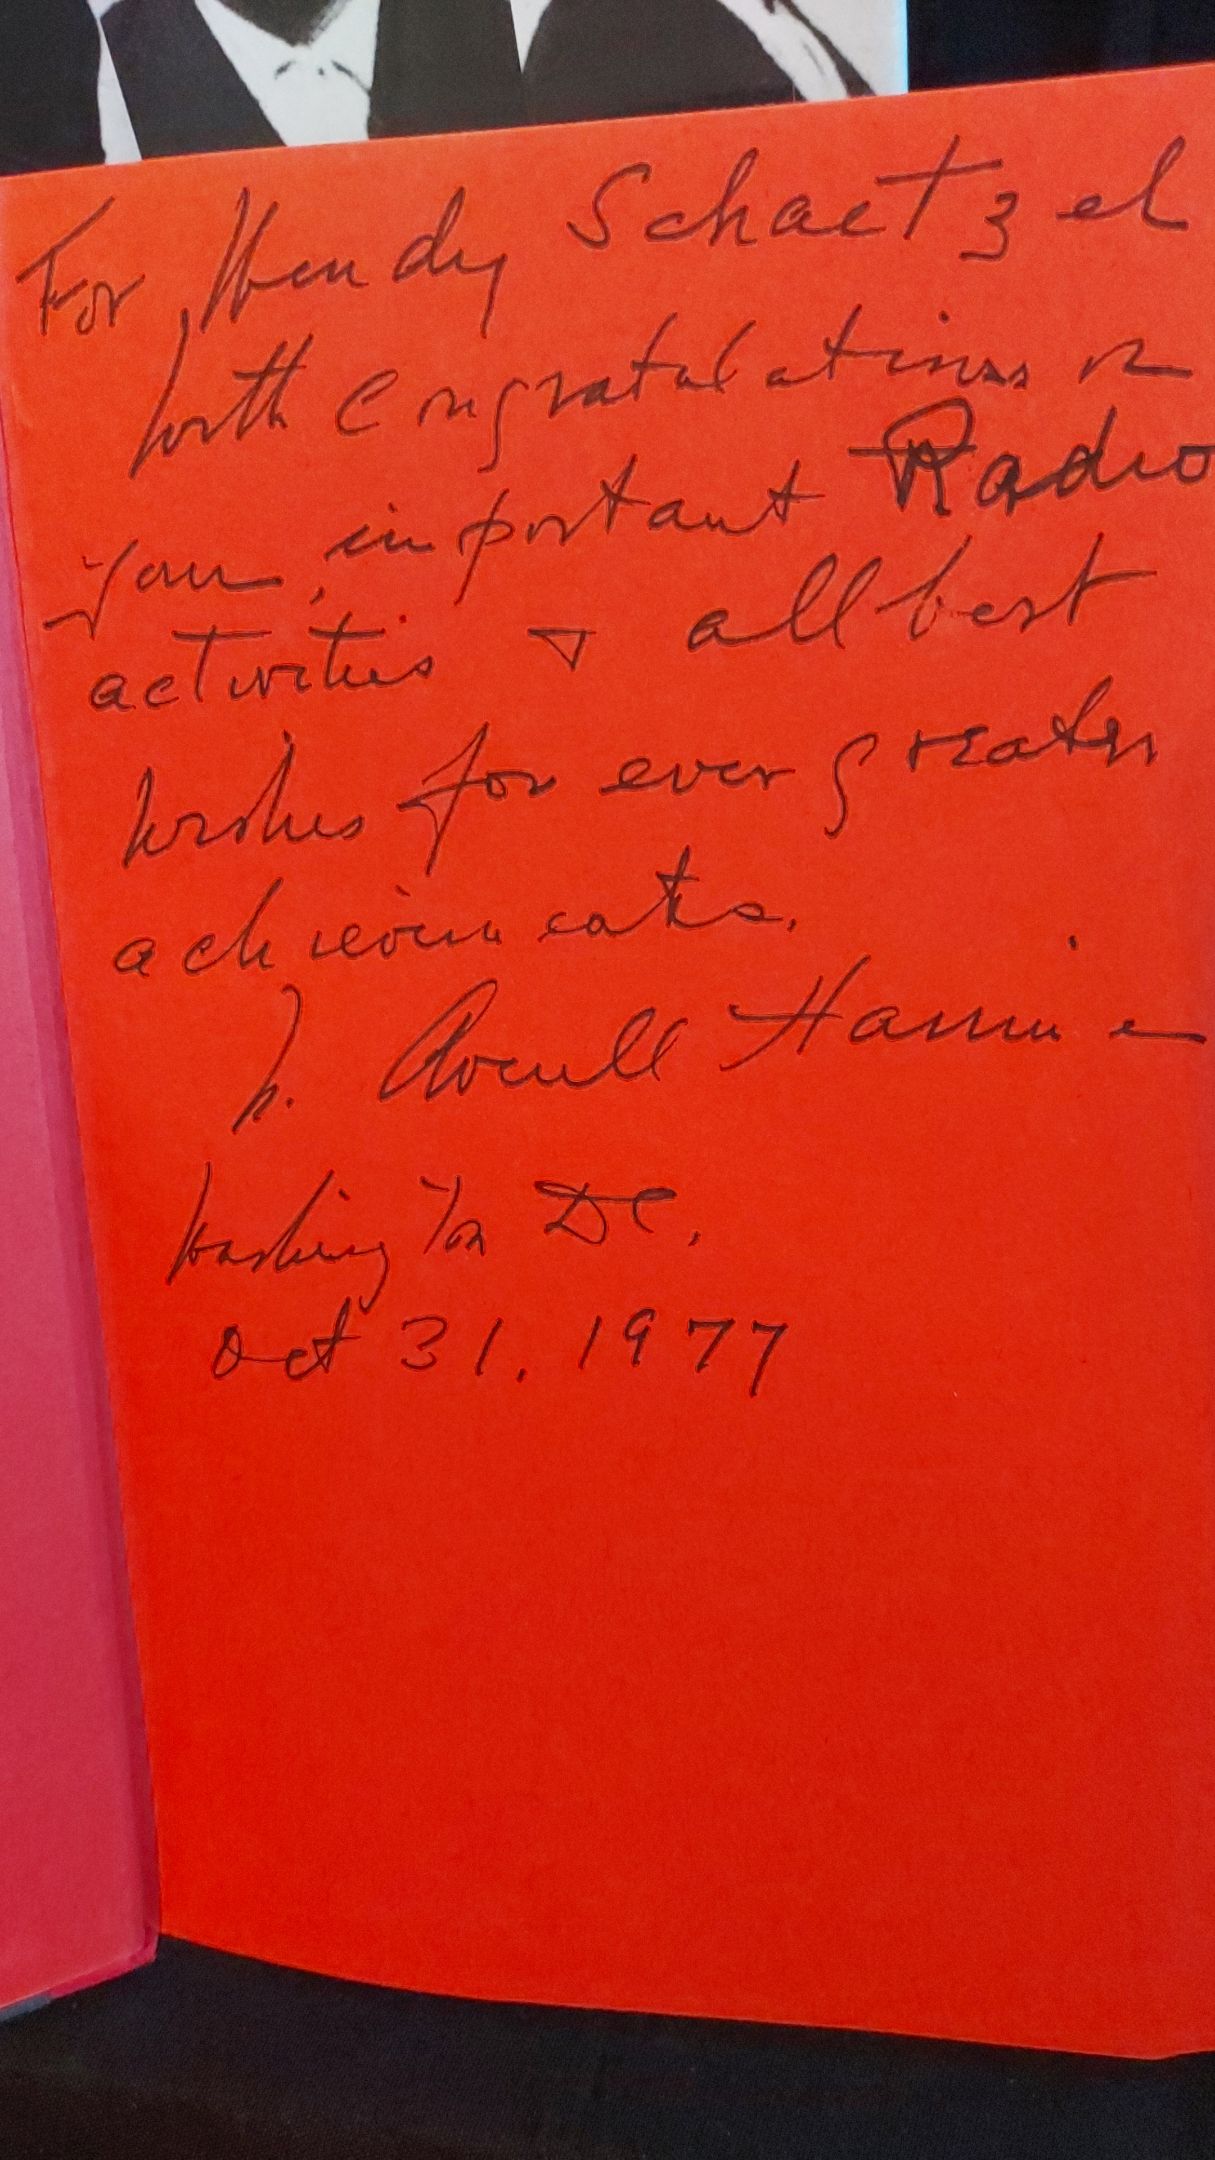 For Wendy Schaetzel
with Congratulations on
your important Radio
activities + all best
wishes for ever greater
achievements.
W. Averell Harriman
Washington DC.
Oct 31, 1977